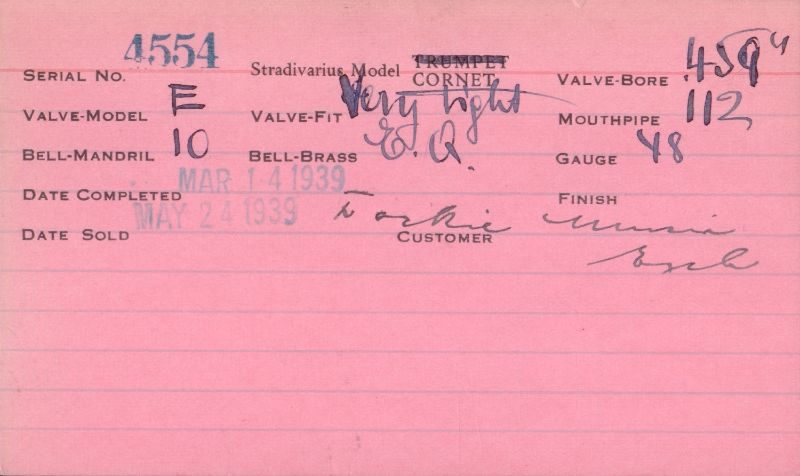 SERIAL NO. 4554 Stradivarius Model TRUMPET CORNET VALVE-BORE .459"
VALVE-MODEL E VALVE-FIT Very tight MOUTHPIPE 112
BELL-MANDRIL 10 BELL-BRASS E.Q. GAUGE 48
DATE COMPLETED MAR 14 1939 FINISH
DATE SOLD MAY 24 1939 CUSTOMER Music